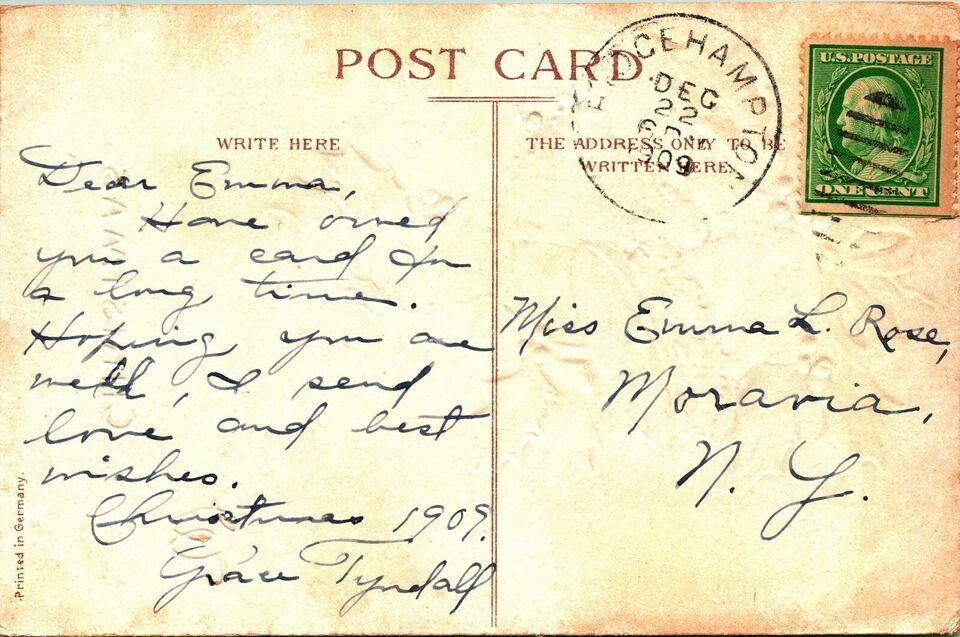 POST CARD
WRITE HERE
THE ADDRESS ONLY TO BE
WRITTEN HERE
BRIDGEHAMPTON
DEC
22
1909
U.S. POSTAGE
ONE CENT
Dear Emma,
Have owed
you a card for
a long time.
Hoping you are
well, I send
love and best
wishes.
Christmas 1909.
Grace Tyndall
Miss Emma L. Rose,
Moravia,
N. Y.
Printed in Germany.